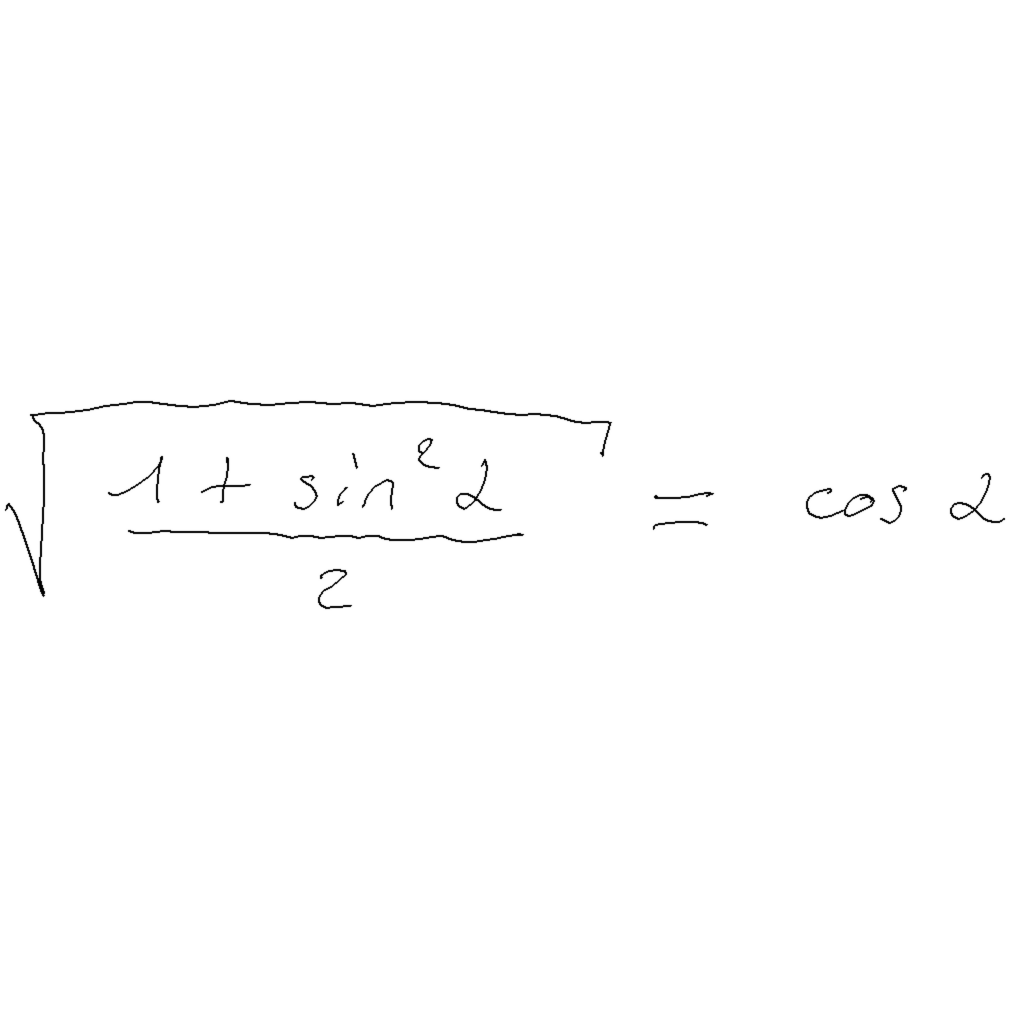 √((1 + sin² α)/2) = cos α